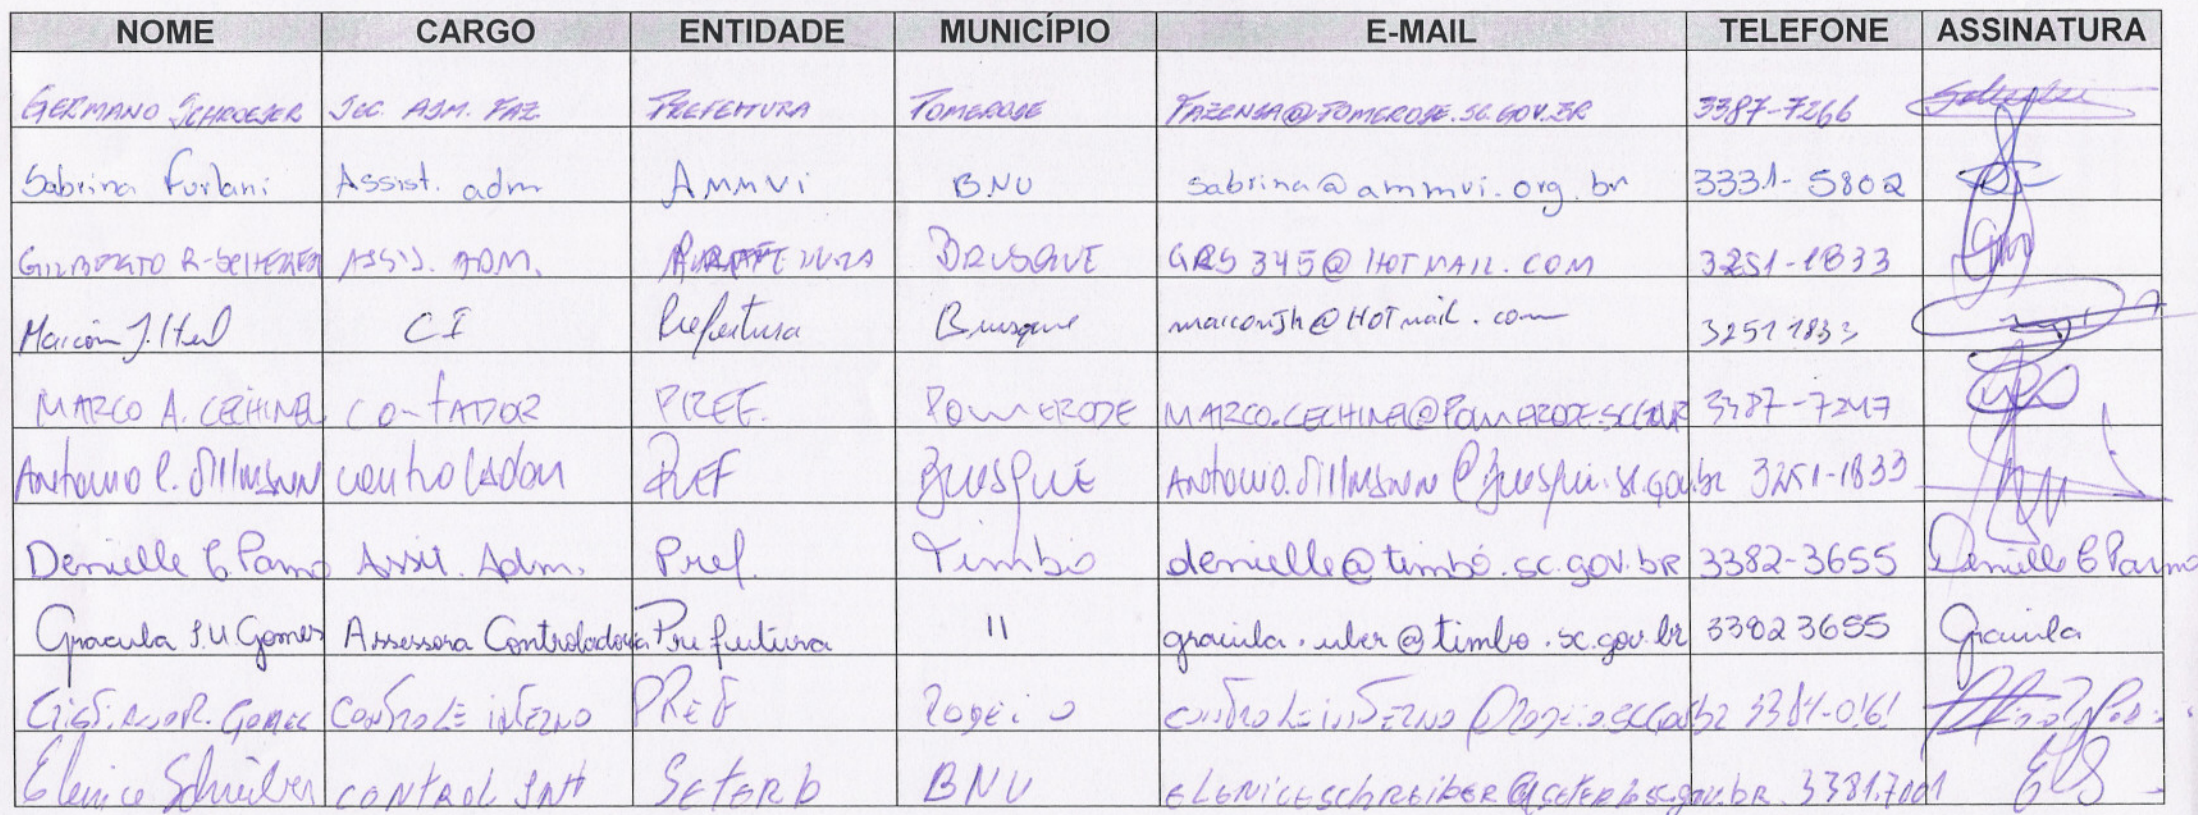 NOME CARGO ENTIDADE MUNICÍPIO E-MAIL TELEFONE ASSINATURA
GERMANO SCHROEDER SEC. ADM. FAZ PREFEITURA POMERODE FAZENDA@POMERODE.SC.GOV.BR 3387-7266
Sabrina Furlani Assist. adm AMMVi BNU sabrina@ammvi.org.br 3331-5802
GILBERTO R. SCHERER ASSIS. ADM. BRUSQUE GRS345@HOTMAIL.COM 3251-1833
Maicon J. CI Prefeitura Brusque maiconjh@HOTmail.com 3251 1833
MARCO A. CECHINEL CONTADOR PREF. POMERODE MARCO.CECHINEL@POMERODE.SC.GOV.BR 3387-7247
Antonio C. Dillmann controlador PREF Brusque Antonio.Dillmann@Brusque.sc.gov.br 3251-1833
Denielle C. Assist. Adm. Pref. Timbó denielle@timbó.sc.gov.bR 3382-3655 Denielle
Graciela S.U. Gomes Assessora Controladoria Prefeitura 11 graciela.uber@timbo.sc.gov.br 33823655 Graciela
Cristiano R. Gomes CONTROLE iNTERNO PREF Rodeio controleinterno@rodeio.sc.gov.br 3384-0161
Elenice Schreiber CONTROL INT SeterB BNU eLeNiCeschReibeR@seterb.sc.gov.bR 3381.7001